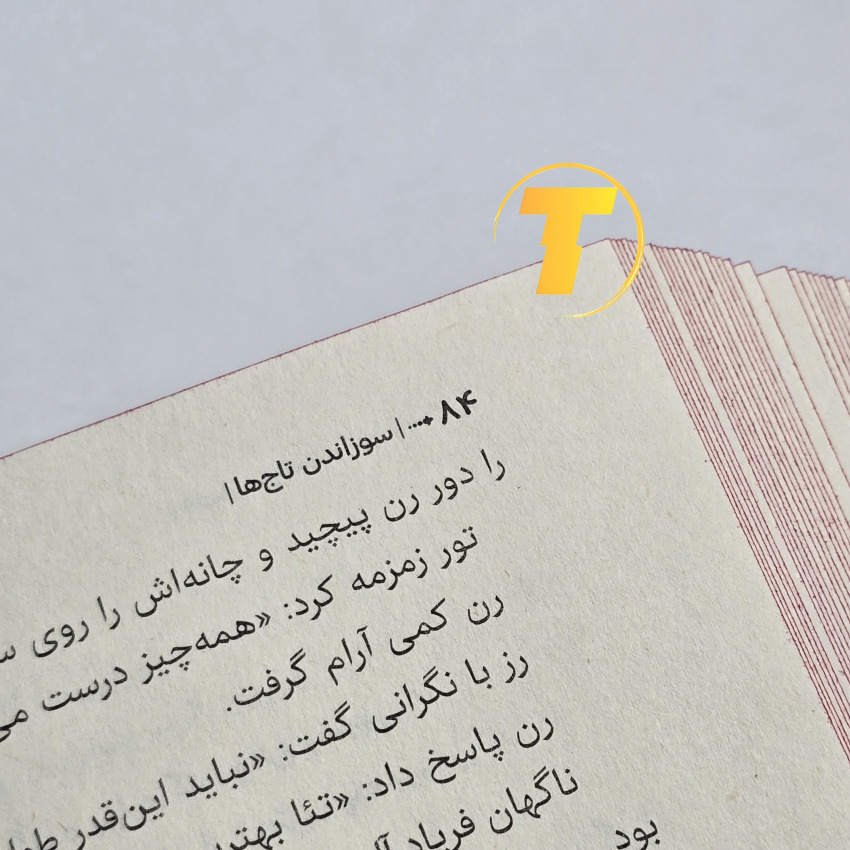 T
۸۴ ... | سوزاندن تاج‌ها |
را دور رن پیچید و چانه‌اش را روی
تور زمزمه کرد: «همه‌چیز درست
رن کمی آرام گرفت.
رز با نگرانی گفت: «نباید این‌قدر
رن پاسخ داد: «تئا بهتر
ناگهان فریاد
بود